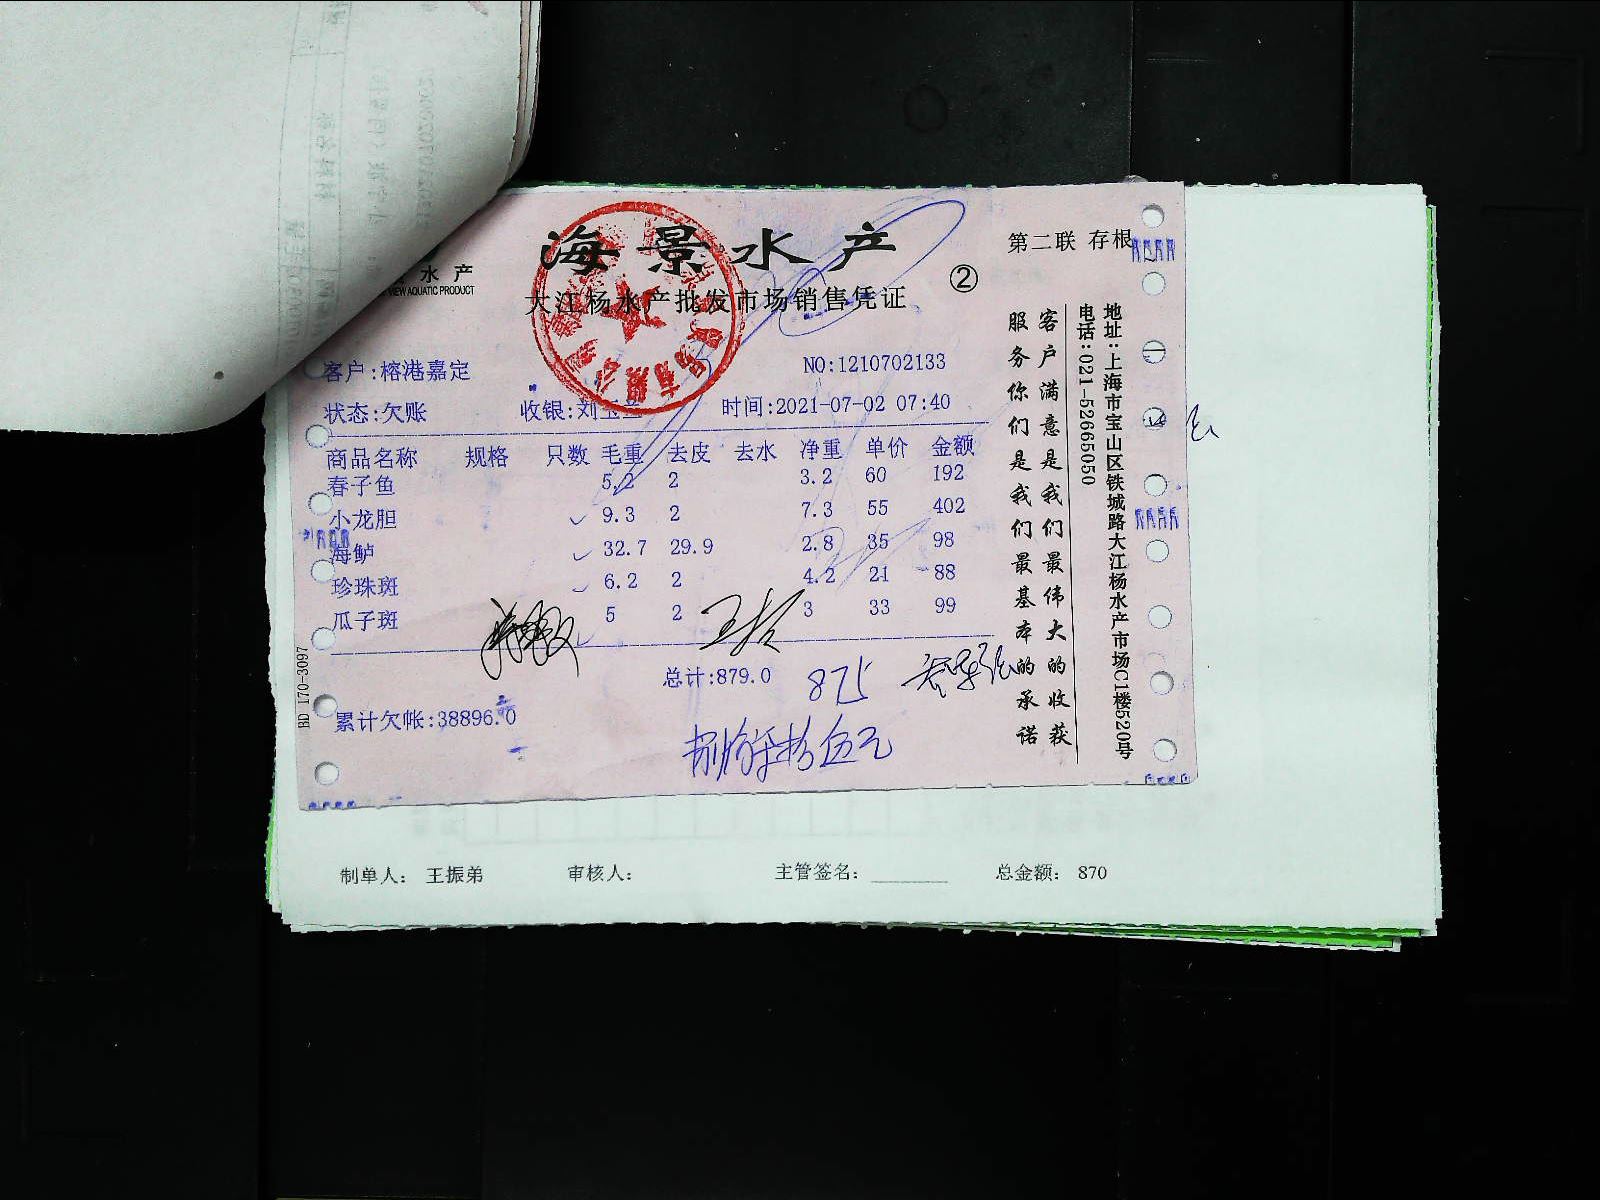 海景水产
水产
VIEW AQUATIC PRODUCT
大江杨水产批发市场销售凭证
②
第二联 存根
客户:榕港嘉定 NO:1210702133
状态:欠账 收银:刘玉兰 时间:2021-07-02 07:40
商品名称 规格 只数 毛重 去皮 去水 净重 单价 金额
春子鱼 5.2 2 3.2 60 192
小龙胆 9.3 2 7.3 55 402
海鲈 32.7 29.9 2.8 35 98
珍珠斑 6.2 2 4.2 21 88
瓜子斑 5 2 3 33 99
总计:879.0
875
累计欠帐:38896.0
捌佰柒拾伍元
BD 170-3097
客户满意是我们最伟大的收获
服务你们是我们最基本的承诺
地址:上海市宝山区铁城路大江杨水产市场C1楼520号
电话:021-52665050
制单人: 王振弟 审核人: 主管签名: 总金额: 870